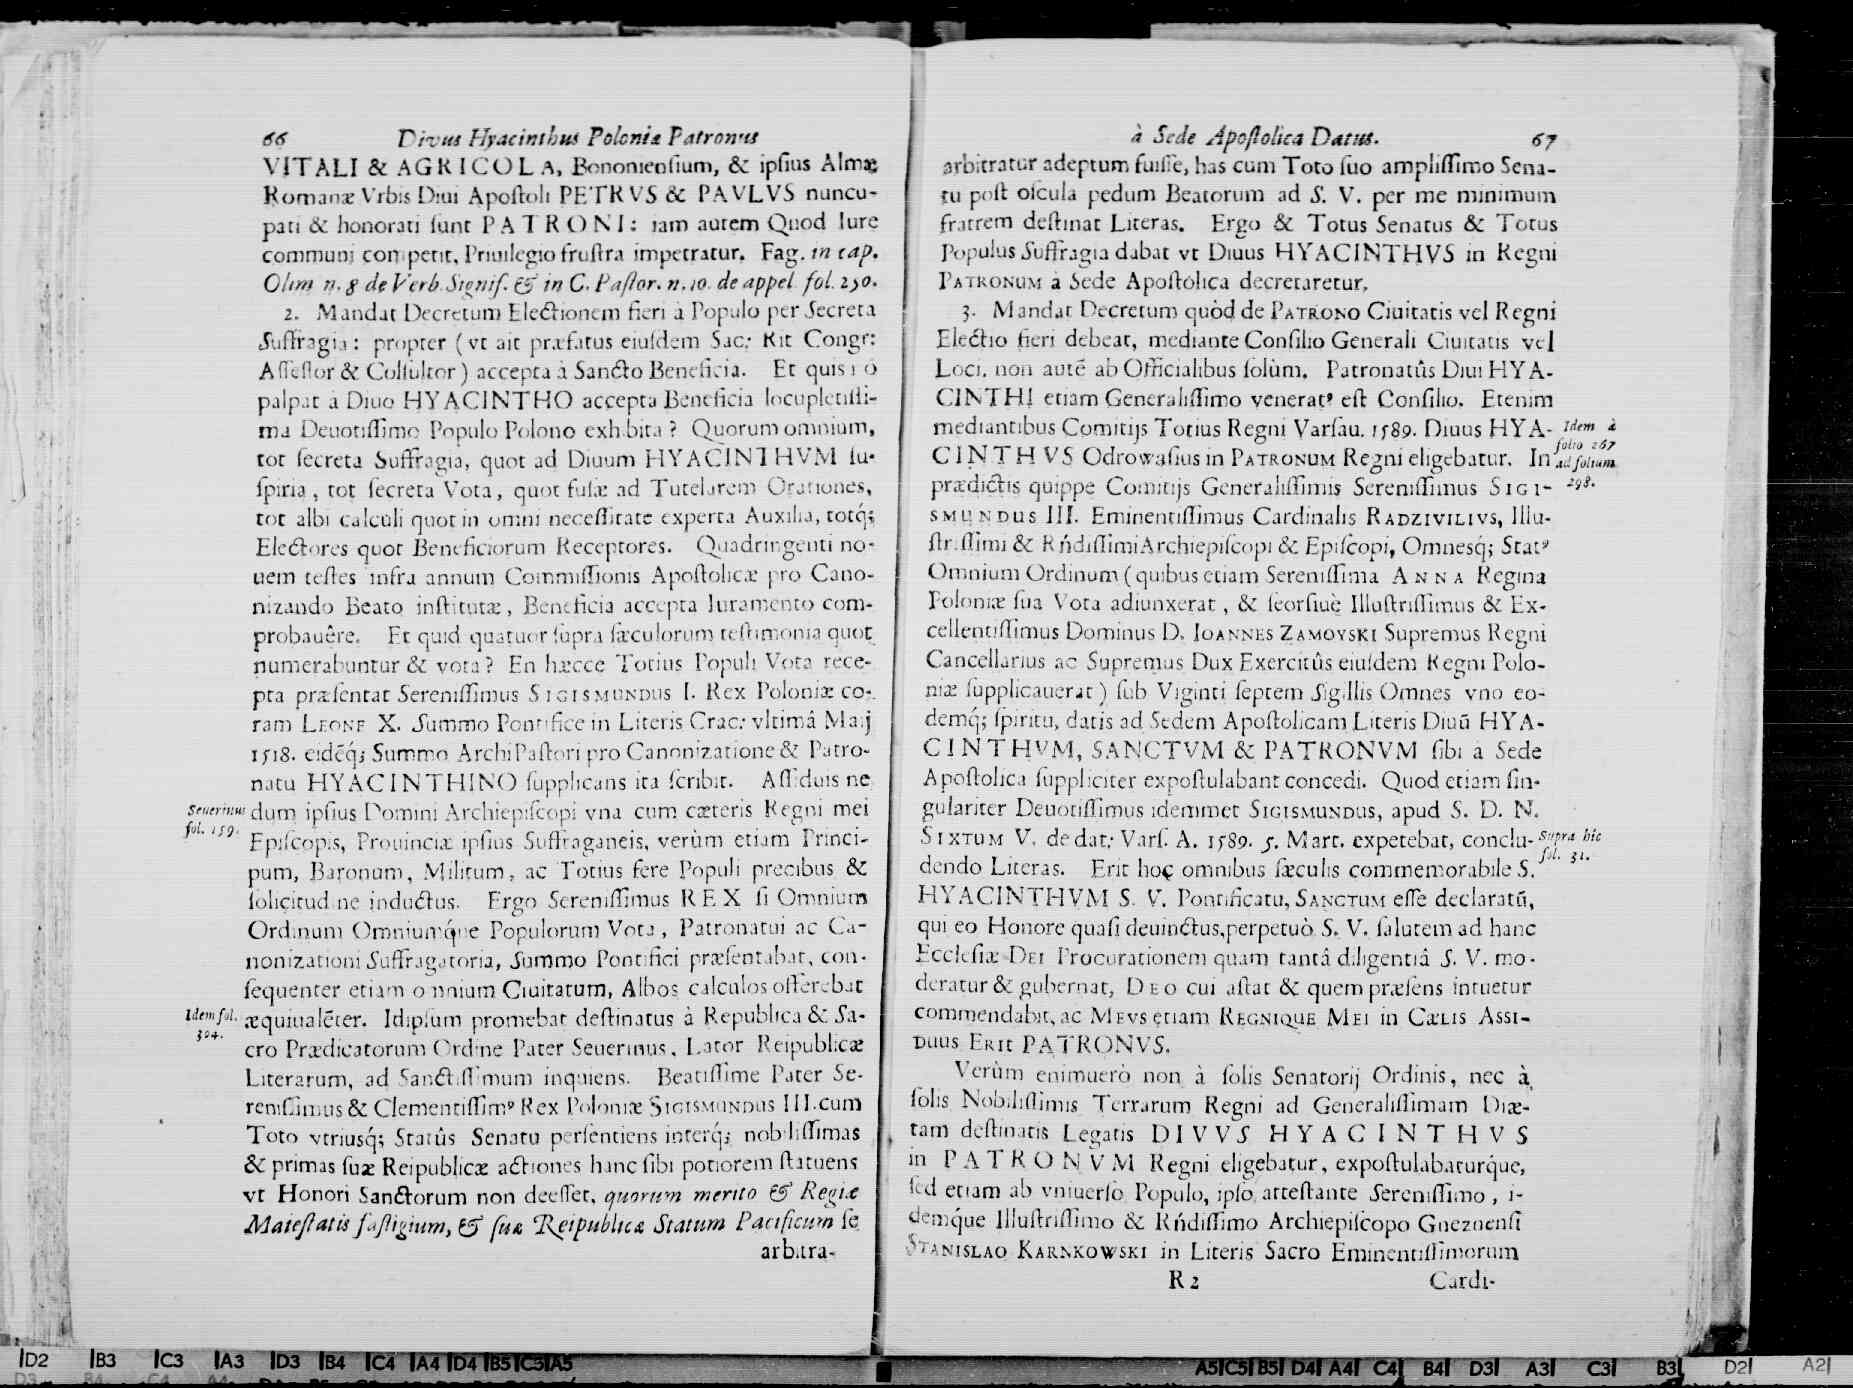 66 Divus Hyacinthus Poloniæ Patronus
VITALI & AGRICOLA, Bononiensium, & ipſius Almæ
Romanæ Vrbis Diui Apoſtoli PETRVS & PAVLVS nuncu-
pati & honorati ſunt PATRONI: iam autem Quod Iure
communi competit, Priuilegio fruſtra impetratur. Fag. in cap.
Olim n. 8 de Verb. Signif. & in C. Paſtor. n. 10. de appel. fol. 250.
2. Mandat Decretum Electionem fieri à Populo per Secreta
Suffragia: propter (vt ait præfatus eiuſdem Sac: Rit Congr:
Aſſeſſor & Coſultor) accepta à Sancto Beneficia. Et quis
palpat à Diuo HYACINTHO accepta Beneficia locupletiſſi-
ma Deuotiſſimo Populo Polono exhibita? Quorum omnium,
tot ſecreta Suffragia, quot ad Diuum HYACINTHVM ſu-
ſpiria, tot ſecreta Vota, quot fuſæ ad Tutelarem Orationes,
tot albi calculi quot in omni neceſſitate experta Auxilia, totq́;
Electores quot Beneficiorum Receptores. Quadringenti no-
uem teſtes infra annum Commiſſionis Apoſtolicæ pro Cano-
nizando Beato inſtitutæ, Beneficia accepta Iuramento com-
probauêre. Et quid quatuor ſupra ſæculorum teſtimonia quot
numerabuntur & vota? En hæcce Totius Populi Vota rece-
pta præſentat Sereniſſimus SIGISMUNDUS I. Rex Poloniæ co-
ram LEONE X. Summo Pontifice in Literis Crac: vltimâ Maij
1518. eidēq́; Summo ArchiPaſtori pro Canonizatione & Patro-
natu HYACINTHINO ſupplicans ita ſcribit. Aſſiduis ne
Seuerinus
fol. 159.
dum ipſius Domini Archiepiſcopi vna cum cæteris Regni mei
Epiſcopis, Prouinciæ ipſius Suffraganeis, verùm etiam Princi-
pum, Baronum, Militum, ac Totius fere Populi precibus &
ſolicitudine inductus. Ergo Sereniſſimus REX ſi Omnium
Ordinum Omniumq́ue Populorum Vota, Patronatui ac Ca-
nonizationi Suffragatoria, Summo Pontifici præſentabat, con-
ſequenter etiam omnium Ciuitatum, Albos calculos offerebat
Idem fol.
304.
æquiualēter. Idipſum promebat deſtinatus à Republica & Sa-
cro Prædicatorum Ordine Pater Seuerinus, Lator Reipublicæ
Literarum, ad Sanctiſſimum inquiens. Beatiſſime Pater Se-
reniſſimus & Clementiſſimꝰ Rex Poloniæ SIGISMUNDUS III. cum
Toto vtriusq́; Statûs Senatu perſentiens interq́; nobiliſſimas
& primas ſuæ Reipublicæ actiones hanc ſibi potiorem ſtatuens
vt Honori Sanctorum non deeſſet, quorum merito & Regiæ
Maieſtatis faſtigium, & ſuæ Reipublicæ Statum Pacificum ſe
arbitra-
à Sede Apoſtolica Datus. 67
arbitratur adeptum fuiſſe, has cum Toto ſuo ampliſſimo Sena-
tu poſt oſcula pedum Beatorum ad S. V. per me minimum
fratrem deſtinat Literas. Ergo & Totus Senatus & Totus
Populus Suffragia dabat vt Diuus HYACINTHVS in Regni
PATRONUM à Sede Apoſtolica decretaretur.
3. Mandat Decretum quòd de PATRONO Ciuitatis vel Regni
Electio fieri debeat, mediante Conſilio Generali Ciuitatis vel
Loci, non autē ab Officialibus ſolùm. Patronatûs Diui HYA-
CINTHI etiam Generaliſſimo veneratꝰ eſt Conſilio. Etenim
mediantibus Comitijs Totius Regni Varſau. 1589. Diuus HYA-
CINTHVS Odrowaſius in PATRONUM Regni eligebatur. In
Idem à
folio 267
ad folium
298.
prædictis quippe Comitijs Generaliſſimis Sereniſſimus SIGI-
SMUNDUS III. Eminentiſſimus Cardinalis RADZIVILIVS, Illu-
ſtriſſimi & Rńdiſſimi Archiepiſcopi & Epiſcopi, Omnesq́; Statꝰ
Omnium Ordinum (quibus etiam Sereniſſima ANNA Regina
Poloniæ ſua Vota adiunxerat, & ſeorſiuè Illuſtriſſimus & Ex-
cellentiſſimus Dominus D. IOANNES ZAMOYSKI Supremus Regni
Cancellarius ac Supremus Dux Exercitûs eiuſdem Regni Polo-
niæ ſupplicauerat) ſub Viginti ſeptem Sigillis Omnes vno eo-
demq́; ſpiritu, datis ad Sedem Apoſtolicam Literis Diuū HYA-
CINTHVM, SANCTVM & PATRONVM ſibi à Sede
Apoſtolica ſuppliciter expoſtulabant concedi. Quod etiam ſin-
gulariter Deuotiſſimus idemmet SIGISMUNDUS, apud S. D. N.
SIXTUM V. de dat: Varſ. A. 1589. 5. Mart. expetebat, conclu-
Supra hic
fol. 31.
dendo Literas. Erit hoc omnibus ſæculis commemorabile S.
HYACINTHVM S. V. Pontificatu, SANCTUM eſſe declaratū,
qui eo Honore quaſi deuinctus, perpetuò S. V. ſalutem ad hanc
Eccleſiæ DEI Procurationem quam tantâ diligentiâ S. V. mo-
deratur & gubernat, DEO cui aſtat & quem præſens intuetur
commendabit, ac MEVS etiam REGNIQUE MEI in CÆLIS ASSI-
DUUS ERIT PATRONVS.
Verùm enimuerò non à ſolis Senatorij Ordinis, nec à
ſolis Nobiliſſimis Terrarum Regni ad Generaliſſimam Diæ-
tam deſtinatis Legatis DIVVS HYACINTHVS
in PATRONVM Regni eligebatur, expoſtulabaturq́ue,
ſed etiam ab vniuerſo Populo, ipſo atteſtante Sereniſſimo, i-
demq́ue Illuſtriſſimo & Rńdiſſimo Archiepiſcopo Gneznenſi
STANISLAO KARNKOWSKI in Literis Sacro Eminentiſſimorum
R 2 Cardi-
D2 B3 C3 A3 D3 B4 C4 A4 D4 B5 C5 A5
A5 C5 B5 D4 A4 C4 B4 D3 A3 C3 B3 D2 A2